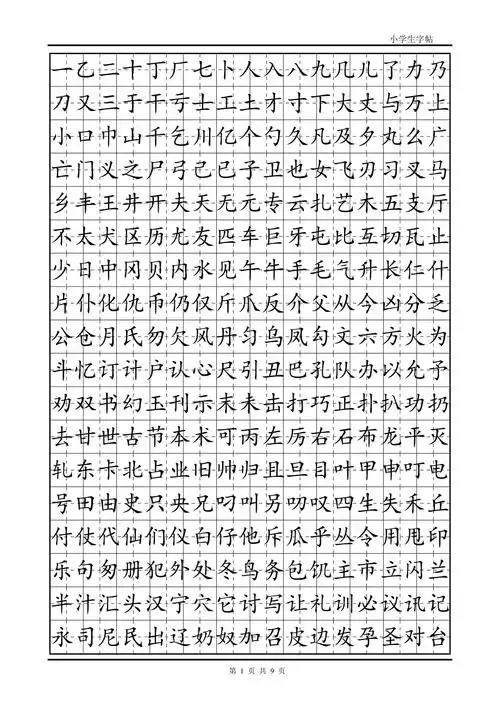 小学生字帖
一乙二十丁厂七卜人入八九几儿了力乃
刀又三于干亏士工土才寸下大丈与万上
小口巾山千乞川亿个勺久凡及夕丸么广
亡门义之尸弓己已子卫也女飞刃习叉马
乡丰王井开夫天无元专云扎艺木五支厅
不太犬区历尤友匹车巨牙屯比互切瓦止
少日中冈贝内水见午牛手毛气升长仁什
片仆化仇币仍仅斤爪反介父从今凶分乏
公仓月氏勿欠风丹匀乌凤勾文六方火为
斗忆订计户认心尺引丑巴孔队办以允予
劝双书幻玉刊示末未击打巧正扑扒功扔
去甘世古节本术可丙左厉右石布龙平灭
轧东卡北占业旧帅归且旦目叶甲申叮电
号田由史只央兄叼叫另叨叹四生失禾丘
付仗代仙们仪白仔他斥瓜乎丛令用甩印
乐句匆册犯外处冬鸟务包饥主市立闪兰
半汁汇头汉宁穴它讨写让礼训必议讯记
永司尼民出辽奶奴加召皮边发孕圣对台
第 1 页 共 9 页